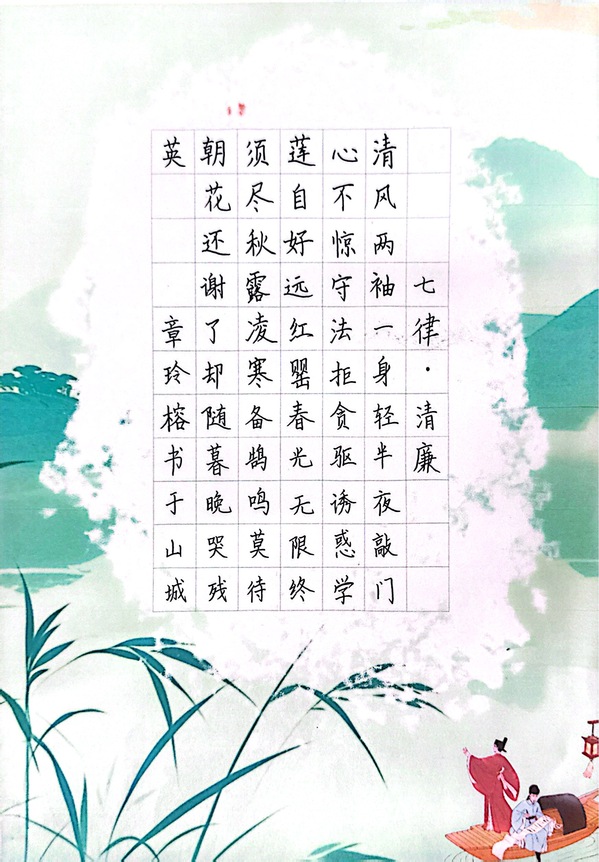 七律·清廉
清风两袖一身轻半夜敲门
心不惊守法拒贪驱诱惑学
莲自好远红罂春光无限终
须尽秋露凌寒备鹄鸣莫待
朝花还谢了却随暮晚哭残
英 章玲榕书于山城